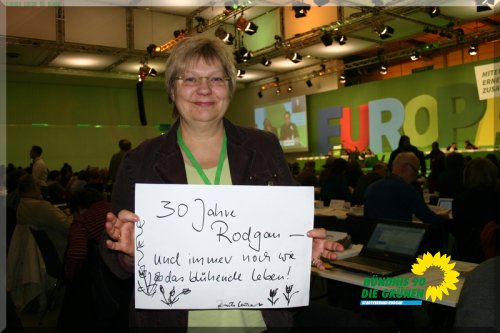 EUROP
MITE
ERNE
ZUSA
30 Jahre
Rodgau –
und immer noch wie
das blühende Leben!
BÜNDNIS 90
DIE GRÜNEN